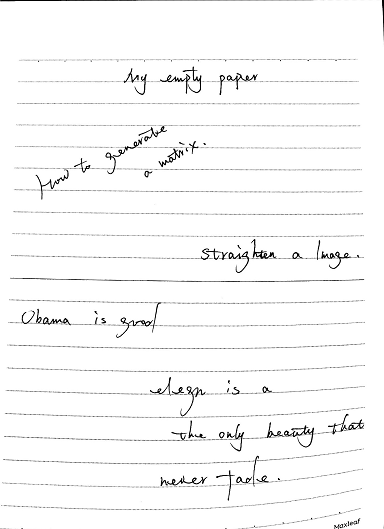 My empty paper
How to generate
a matrix.
straighten a Image.
Obama is good
is a
the only beauty that
never fade.
Maxleaf